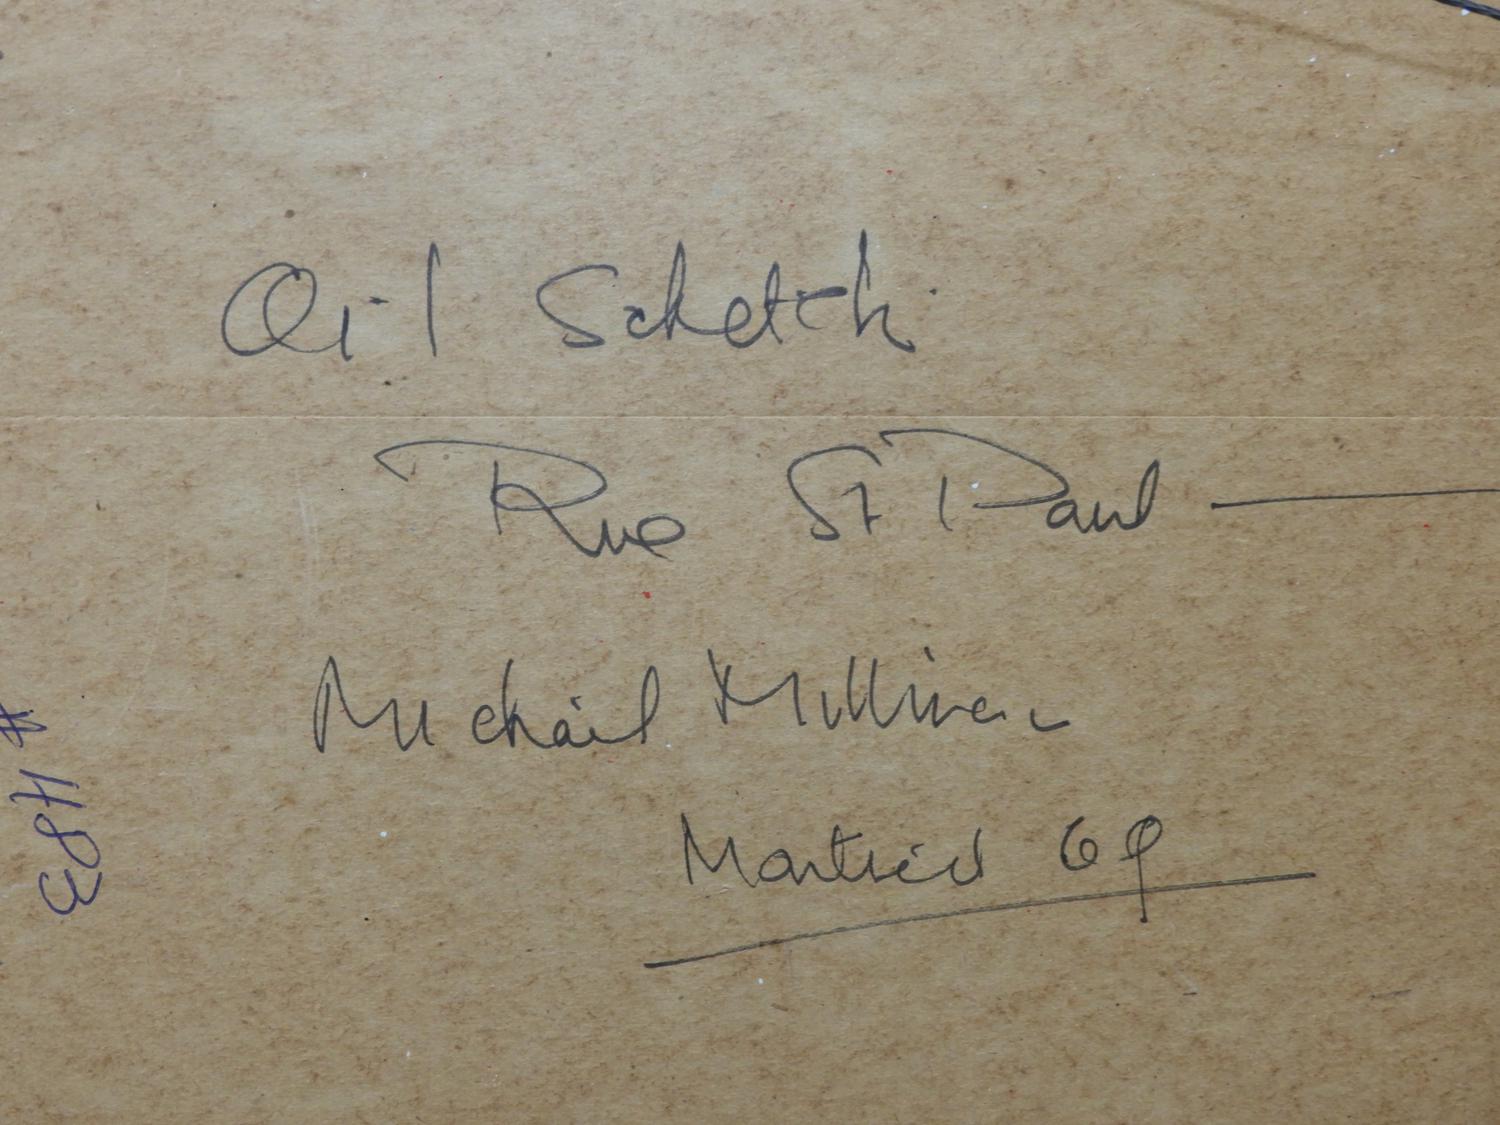 Oil Schetch
Rue St Paul —
Michael Milliken
Montreal 69
# 483